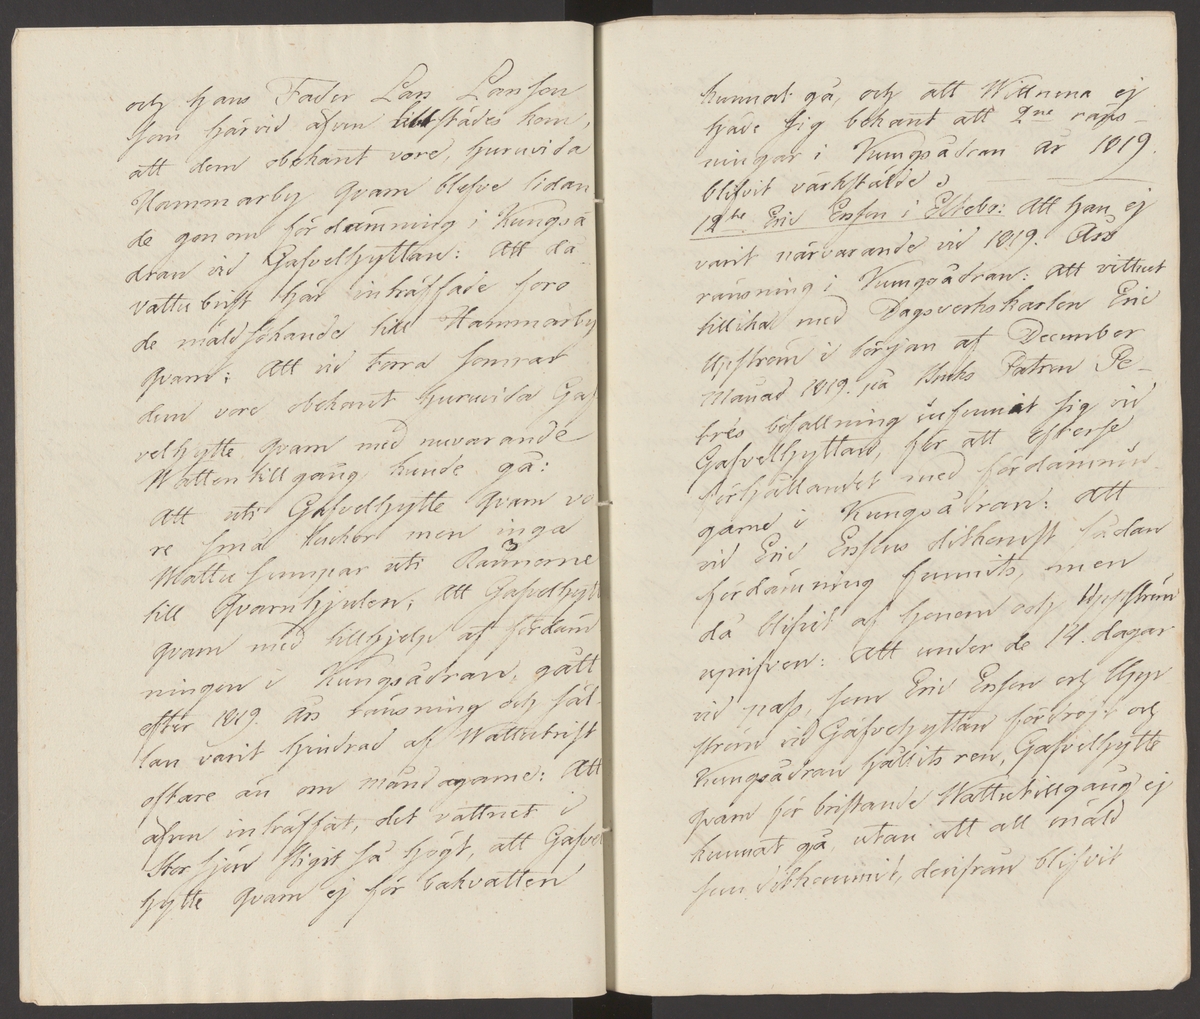 och hans Fader Lars Larsson
som härvid äfven tillstädes kom,
att dem obekant vore, huruvida
Hammarby Qvarn blefve lidan
de genom fördämning i Kungså
dran vid Gafvelhyttan: Att då
vattubrist här inträffade foro
de mäldsökande till Hammarby
Qvarn; Att vid torra somrar
dem vore obekant huruvida Gaf
velhytte Qvarn med nuvarande
Wattentillgång kunde gå:
Att uti Gafvelhytte Qvarn vo
re små luckor men inga
Wattu sumpar uti Rännorne
till Qvarnhjulen; Att Gafvelhytt
Qvarn med tillhjelp af fördäm
ningen i Kungsådran, gått
efter 1819. Års ränsning och säl
lan varit hindrad af Wattubrist
oftare än om måndagarne: Att
äfven inträffat, det vattnet i
Storsjön stigit så högt, att Gafvel
hytte Qvarn ej för bakvatten
kunnat gå, och att Wittnena ej
hade sig bekant att 2ne räns-
ningar i Kungsådran År 1819.
blifvit värkstälde,
12te Eric Ersson i Elkebo: Att han ej
varit närvarande vid 1819. Års
ränsning i Kungsådran: Att vittnet
tillika med Dagsverkskarlen Eric
Uppström i början af December
Månad 1819. på Bruks Patron Pe-
tres befallning infunnit sig vid
Gafvelhyttan, för att efterse
förhållandet med fördämnin
garne i Kungsådran: Att
vid Eric Erssons ditkomst sådan
fördämning funnits, men
då blifvit af honom och Uppström
uprifven: Att under de 14. dagar
vid pass, som Eric Ersson och Upp
ström vid Gafvelhyttan fördröjt och
Kungsådran hållits ren, Gafvelhytte
Qvarn för bristande Wattutillgång ej
kunnat gå, utan att all mäld
som ditkommit, derifrån blifvit